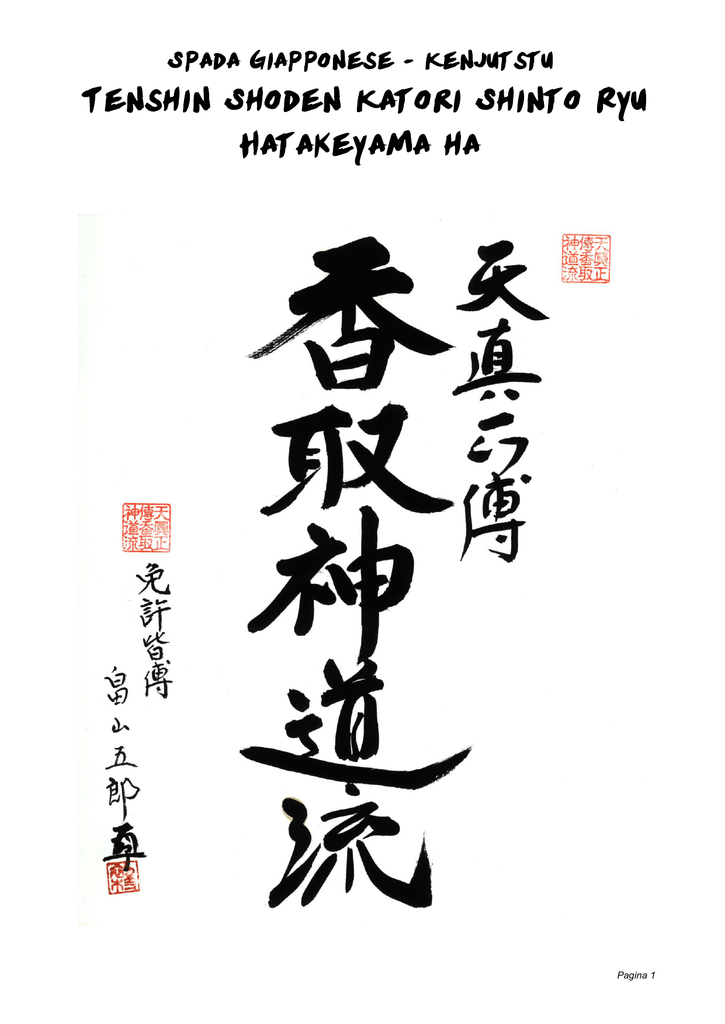 SPADA GIAPPONESE - KENJUTSTU
TENSHIN SHODEN KATORI SHINTO RYU
HATAKEYAMA HA
天眞正
傳香取
神道流
天真正傳
香取神道流
天眞正
傳香取
神道流
免許皆傳
畠山五郎
Pagina 1